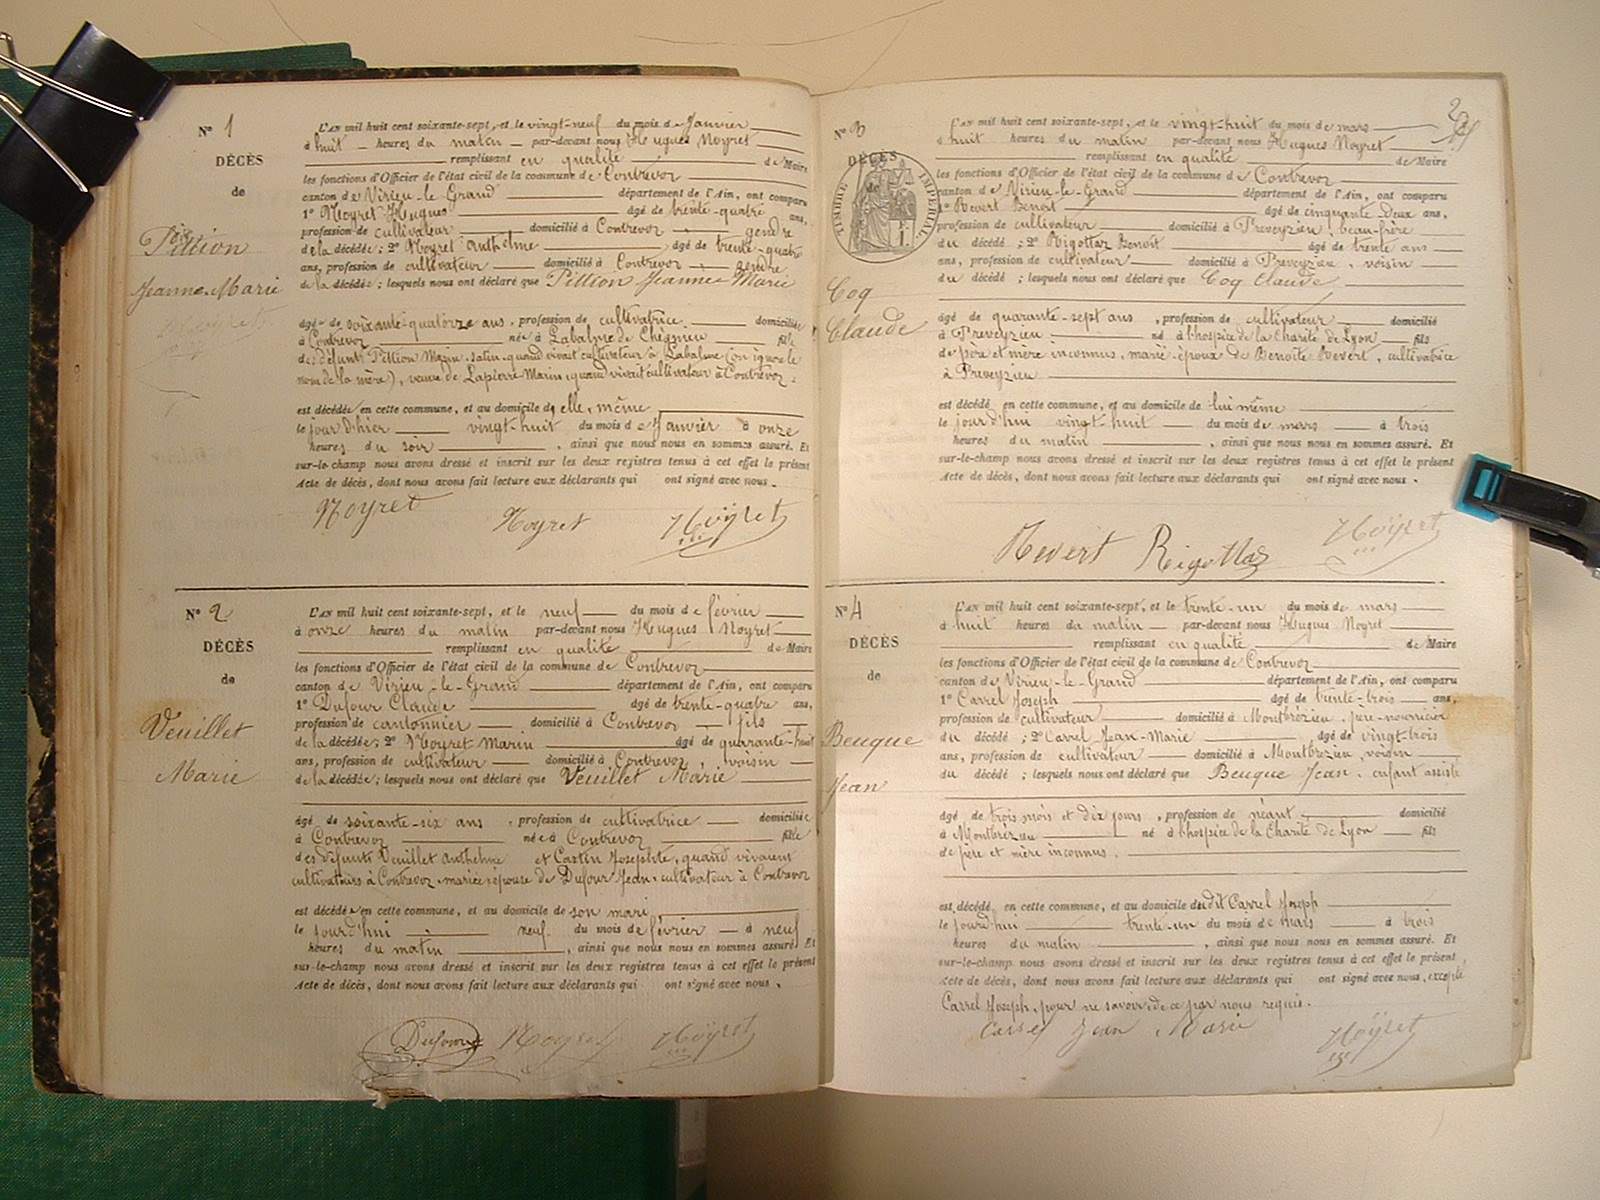 N° 1
DÉCÈS
de
Pittion
Jeanne-Marie
L'AN mil huit cent soixante-sept, et le vingt-neuf du mois de Janvier
à huit heures du matin par-devant nous Hugues Noyret
remplissant en qualité de Maire
les fonctions d'Officier de l'état civil de la commune de Contrevoz
canton de Virieu-le-Grand département de l'Ain, ont comparu
1° Noyret Hugues âgé de trente-quatre ans,
profession de cultivateur domicilié à Contrevoz gendre
de la décédée; 2° Noyret Anthelme, âgé de trente-quatre
ans, profession de cultivateur domicilié à Contrevoz gendre
de la décédée; lesquels nous ont déclaré que Pittion Jeanne Marie
âgée de soixante-quatorze ans, profession de cultivatrice domiciliée
à Contrevoz née à Labalme de Cheignieu fille
des défunts Pittion Marin, quand vivait cultivateur à Labalme (on ignore le
nom de la mère), veuve de Lapierre Marin, quand vivait cultivateur à Contrevoz;
est décédée en cette commune, et au domicile d'elle même
le jour d'hier vingt-huit du mois de Janvier à onze
heures du soir, ainsi que nous nous en sommes assuré. Et
sur-le-champ nous avons dressé et inscrit sur les deux registres tenus à cet effet le présent
Acte de décès, dont nous avons fait lecture aux déclarants qui ont signé avec nous.
Noyret Noyret Noyret
N° 2
DÉCÈS
de
Veuillet
Marie
L'AN mil huit cent soixante-sept, et le neuf du mois de février
à onze heures du matin par-devant nous Hugues Noyret
remplissant en qualité de Maire
les fonctions d'Officier de l'état civil de la commune de Contrevoz
canton de Virieu-le-Grand département de l'Ain, ont comparu
1° Dufour Claude âgé de trente-quatre ans,
profession de cantonnier domicilié à Contrevoz fils
de la décédée; 2° Noyret Marin âgé de quarante-huit
ans, profession de cultivateur domicilié à Contrevoz, voisin
de la décédée; lesquels nous ont déclaré que Veuillet Marie
âgée de soixante-six ans, profession de cultivatrice domiciliée
à Contrevoz née à Contrevoz fille
des défunts Veuillet Anthelme et Castin Josephte, quand vivaient
cultivateurs à Contrevoz, mariée épouse de Dufour Jean, cultivateur à Contrevoz
est décédée en cette commune, et au domicile de son mari
le jourd'hui neuf du mois de février à neuf
heures du matin, ainsi que nous nous en sommes assuré. Et
sur-le-champ nous avons dressé et inscrit sur les deux registres tenus à cet effet le présent
Acte de décès, dont nous avons fait lecture aux déclarants qui ont signé avec nous.
Dufour Noyret Noyret
N° 3
DÉCÈS
de
TIMBRE IMPÉRIAL
Coq
Claude
L'AN mil huit cent soixante-sept, et le vingt-huit du mois de mars
à huit heures du matin par-devant nous Hugues Noyret
remplissant en qualité de Maire
les fonctions d'Officier de l'état civil de la commune de Contrevoz
canton de Virieu-le-Grand département de l'Ain, ont comparu
1° Revert Benoit âgé de cinquante deux ans,
profession de cultivateur domicilié à Preveyzieu, beau-frère
du décédé; 2° Rigottaz Benoit âgé de trente ans
ans, profession de cultivateur domicilié à Preveyzieu, voisin
du décédé; lesquels nous ont déclaré que Coq Claude
âgé de quarante-sept ans, profession de cultivateur domicilié
à Preveyzieu né à l'hospice de la Charité de Lyon fils
de père et mère inconnus, marié époux de Benoite Revert, cultivatrice
à Preveyzieu
est décédé en cette commune, et au domicile de lui même
le jourd'hui vingt-huit du mois de mars à trois
heures du matin, ainsi que nous nous en sommes assuré. Et
sur-le-champ nous avons dressé et inscrit sur les deux registres tenus à cet effet le présent
Acte de décès, dont nous avons fait lecture aux déclarants qui ont signé avec nous.
Revert Rigottaz Noyret
N° 4
DÉCÈS
de
Beuque
Jean
L'AN mil huit cent soixante-sept, et le trente-un du mois de mars
à huit heures du matin par-devant nous Hugues Noyret
remplissant en qualité de Maire
les fonctions d'Officier de l'état civil de la commune de Contrevoz
canton de Virieu-le-Grand département de l'Ain, ont comparu
1° Carrel Joseph âgé de trente-trois ans,
profession de cultivateur domicilié à Montbrézieu, père-nourricier
du décédé; 2° Carrel Jean-Marie, âgé de vingt-trois
ans, profession de cultivateur domicilié à Montbrezieu, voisin
du décédé; lesquels nous ont déclaré que Beuque Jean, enfant assisté
âgé de trois mois et dix jours, profession de néant domicilié
à Montbrezieu né à l'hospice de la Charité de Lyon fils
de père et mère inconnus.
est décédé en cette commune, et au domicile dudit Carrel Joseph
le jourd'hui trente-un du mois de mars à trois
heures du matin, ainsi que nous nous en sommes assuré. Et
sur-le-champ nous avons dressé et inscrit sur les deux registres tenus à cet effet le présent
Acte de décès, dont nous avons fait lecture aux déclarants qui ont signé avec nous, excepté
Carrel Joseph, pour ne savoir de ce par nous requis.
Carrel Jean Marie Noyret